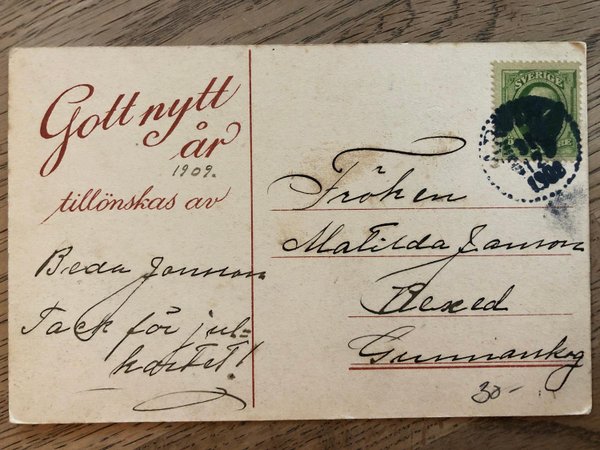 Gott nytt
år
1909.
tillönskas av
Beda Jonsson
Tack för jul-
kortet!
SVERIGE
1908
Fröken
Matilda Janson
Gunnarskog
30-